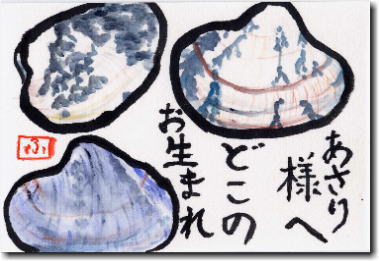 あさり
様へ
どこの
お生まれ
ふ